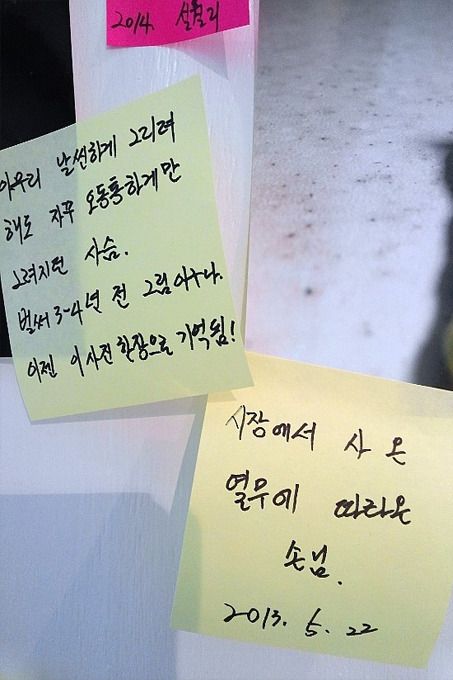 2014. 설흘리
아무리 날씬하게 그리려
해도 자꾸 오동통하게만
그려지던 사슴.
벌써 3-4년 전 그림이구나.
이젠 이 사진 한장으로 기억됨!
시장에서 사 온
열무에 따라온
손님.
2013. 5. 22